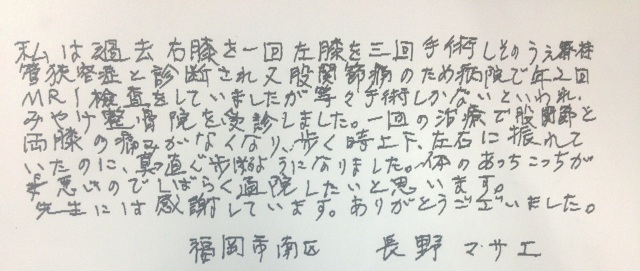 私は過去右膝を一回左膝を三回手術しそのうえ脊柱
管狭窄症と診断され又股関節痛のため病院で年2回
MRI検査をしていましたが等々手術しかないといわれ、
みやけ整骨院を受診しました。一回の治療で股関節と
両膝の痛みがなくなり、歩く時上下、左右に振れて
いたのに、真っ直ぐ歩けるようになりました。体のあっちこっちが
悪いのでしばらく通院したいと思います。
先生には感謝しています。ありがとうございました。
福岡市南区　長野マサエ